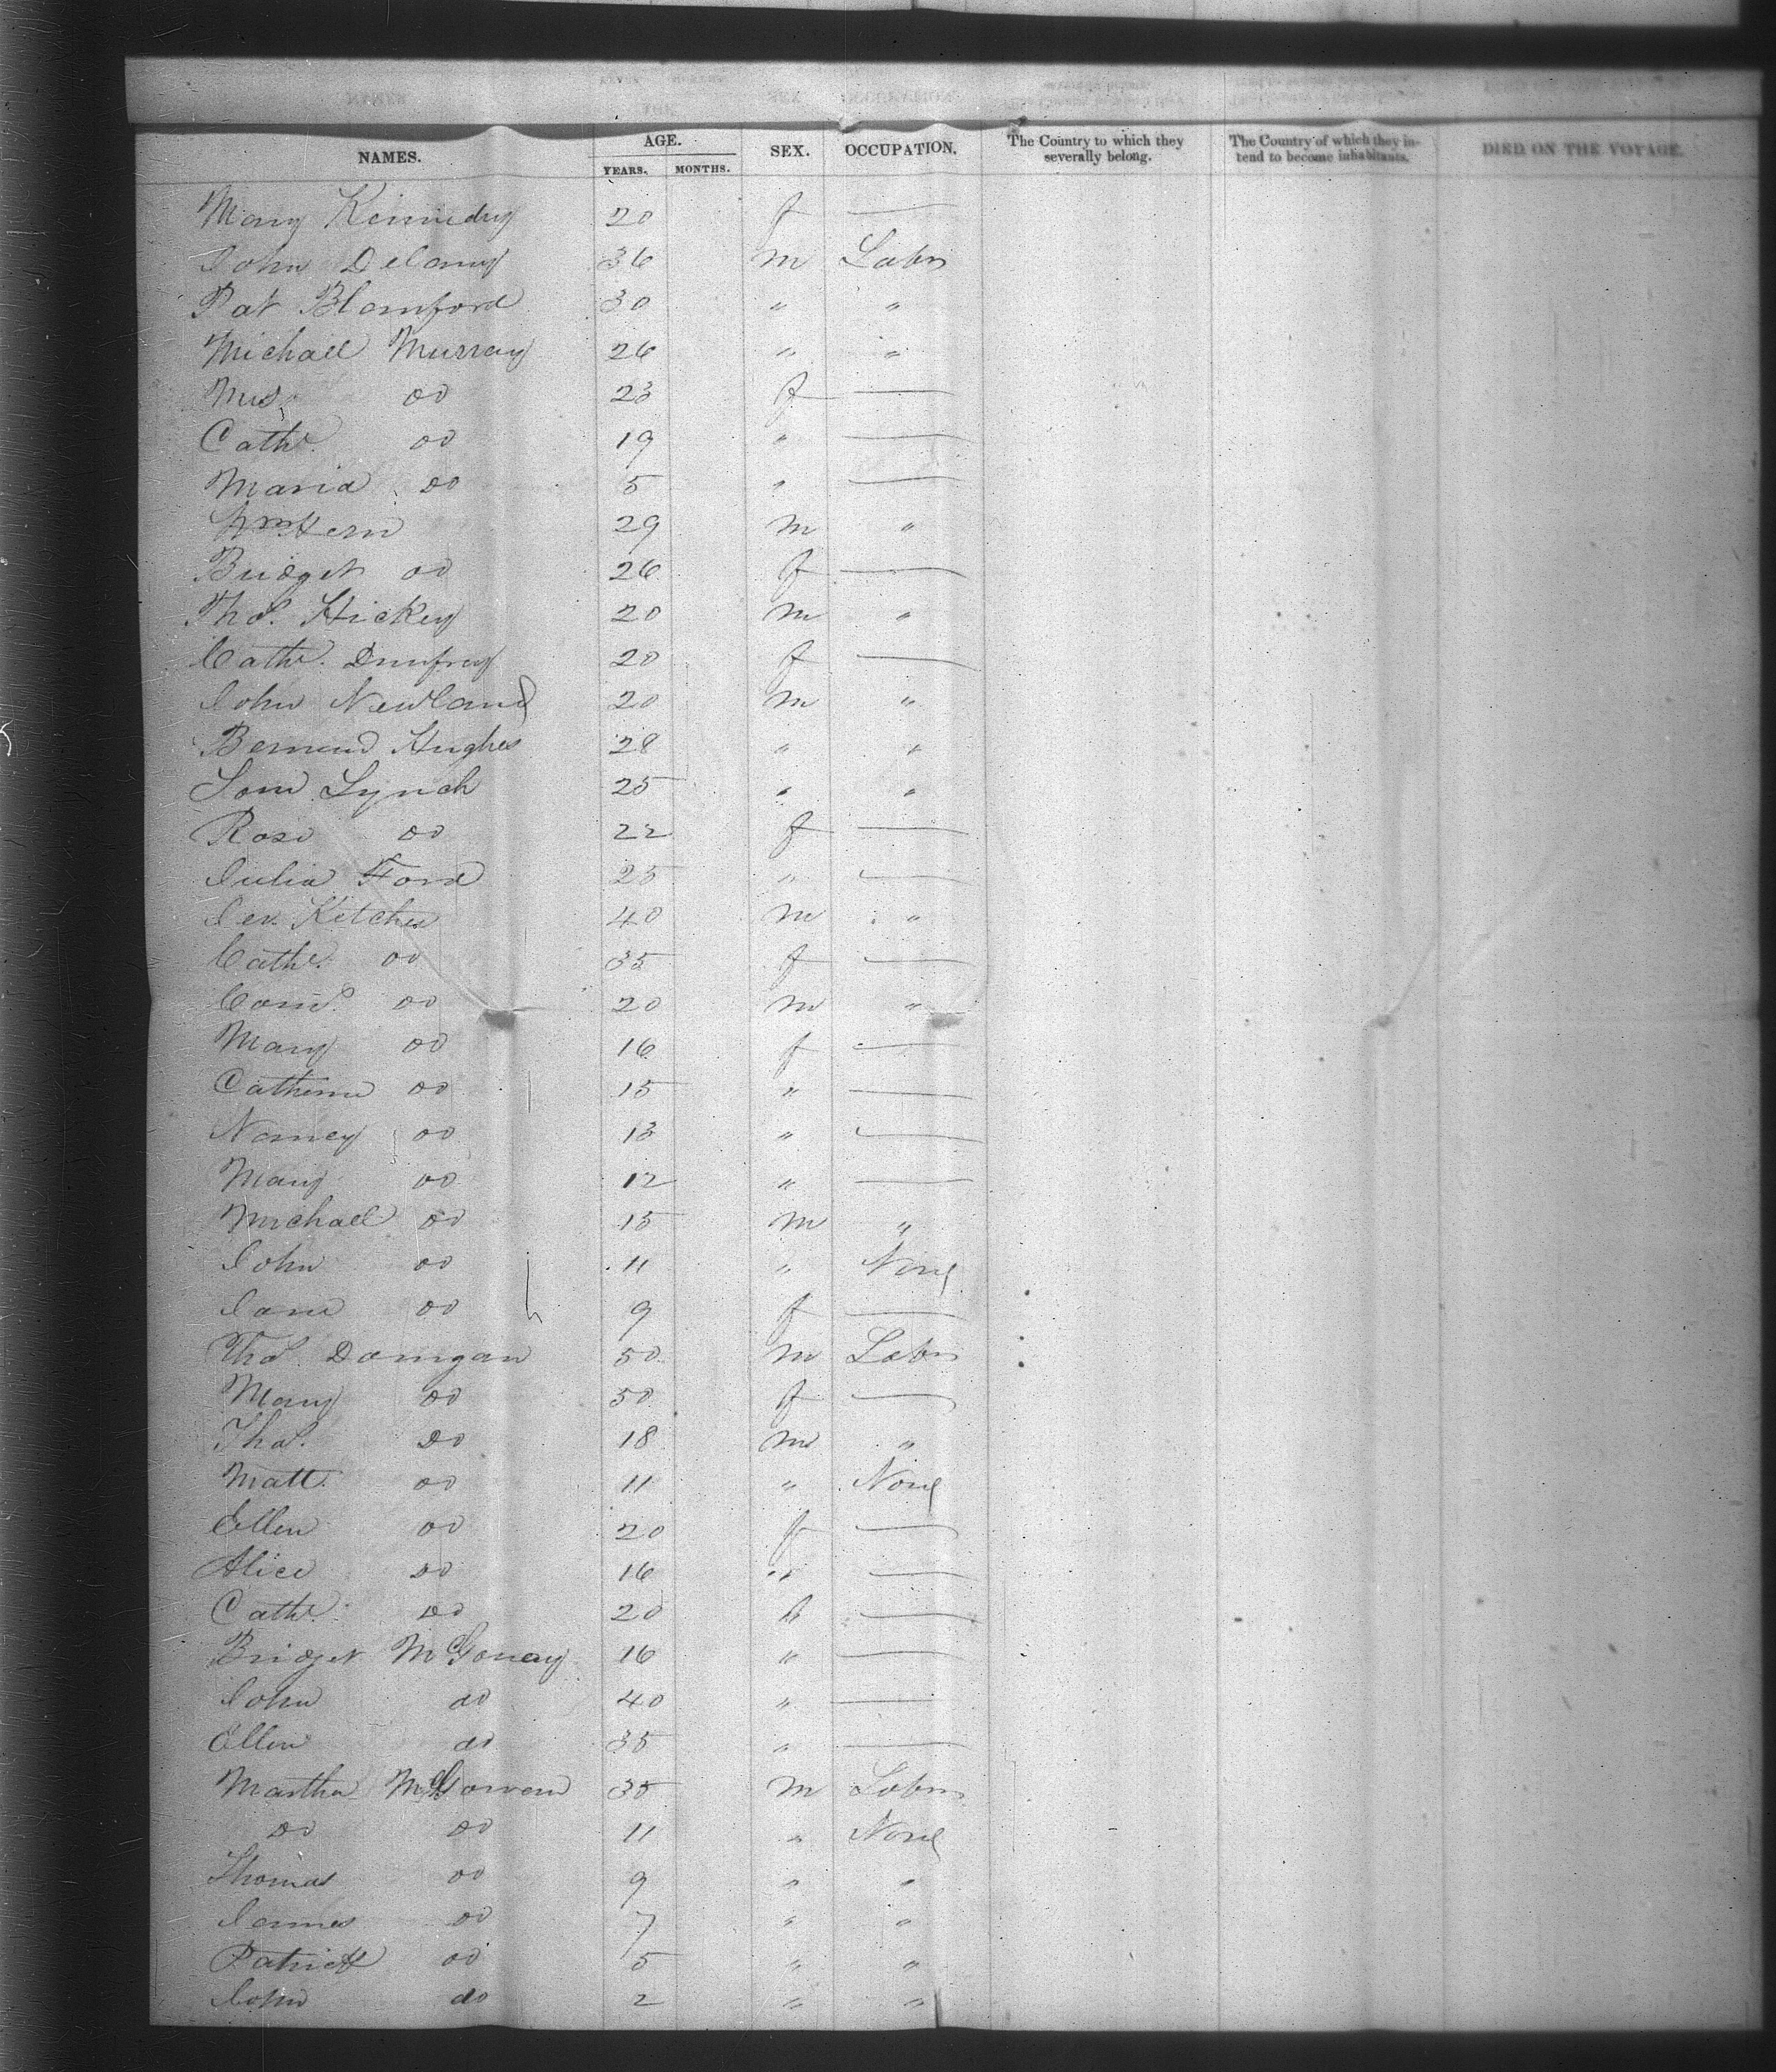 NAMES. AGE. SEX. OCCUPATION. The Country to which they severally belong. The Country of which they intend to become inhabitants. DIED ON THE VOYAGE.
YEARS. MONTHS.
Mary Kennedy 20 f —
John Delany 36 m Labr
Pat Blanford 30 " "
Michael Murray 26 " "
Mrs. do 23 f —
Cathe. do 19 " —
Maria do 5 " —
Wm Kern 29 m "
Bridget do 26 f —
Thos. Hickey 20 m "
Cathe. Dumfrey 20 f —
John Newland 20 m "
Bernard Hughes 28 " "
Lynch 25 " "
Rose do 22 f —
Julia Ford 25 " —
Jer. Kitcher 40 m "
Cathe. do 35 f —
Cons. do 20 m "
Mary do 16 f —
Catherine do 15 " —
Nancy do 13 " —
Mary do 12 " —
Michael do 15 m "
John do 11 " None
Jane do 9 f —
Thos. Donigan 50 m Labr
Mary do 50 f —
Thos. Do 18 m "
Matt. do 11 " None
Ellen do 20 f —
Alice Do 16 " —
Cathe. Do 20 —
Bridget McGoney 16 " —
John do 40 " —
Ellen do 35 " —
Martha McGowen 35 m Labr
Do Do 11 " None
Thomas do 9 " "
James do 7 " "
Patrick do 5 " "
John do 2 " "